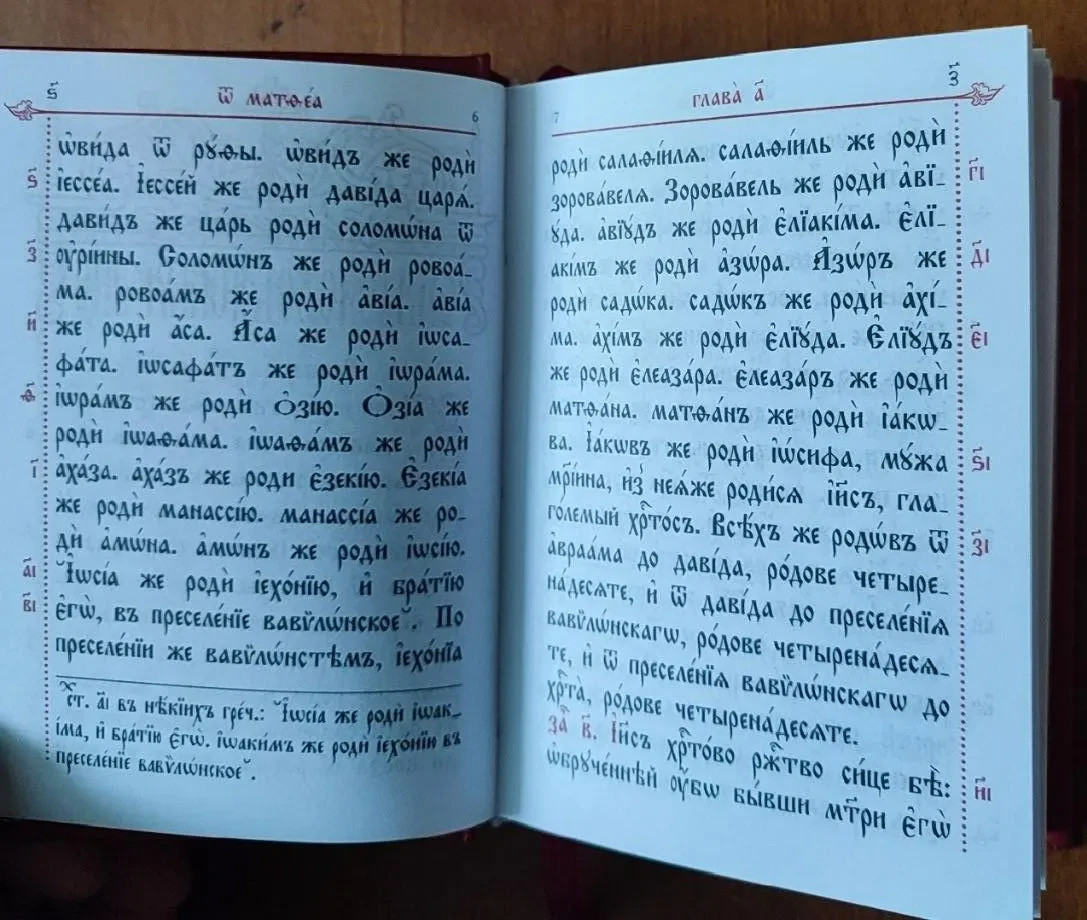 ѕ҃
ѿ матѳе́а
6
ѡ҆ви́да ѿ рꙋ́ѳы. ѡ҆ви́дъ же родѝ
ѕ҃
і҆ессе́а. І҆ессе́й же родѝ даві́да царѧ̀.
дави́дъ же ца́рь родѝ соломѡ́на ѿ
з҃
ᲂу҆рі́ины. Соломѡ́нъ же родѝ ровоа́-
ма. ровоа́мъ же родѝ а҆ві́а. а҆ві́а
и҃
же родѝ а҆́са. А҆́са же родѝ і҆ѡса-
фа́та. і҆ѡсафа́тъ же родѝ і҆ѡра́ма.
ѳ҃
і҆ѡра́мъ же родѝ ѻ҆зі́ю. Ѻ҆зі́а же
родѝ і҆ѡаѳа́ма. і҆ѡаѳа́мъ же родѝ
і҃
а҆ха́за. а҆ха́зъ же роди є҆зекі́ю. Є҆зекі́а
же родѝ манассі́ю. манассі́а же ро-
дѝ а҆мѡ́на. а҆мѡ́нъ же родѝ і҆ѡсі́ю.
а҃і
І҆ѡсі́а же родѝ і҆ехо́нїю, и҆ бра́тїю
в҃і
є҆гѡ̀, въ преселе́нїе вавѷлѡ́нское. По
преселе́нїи же вавѷлѡ́нстѣмъ, і҆ехо́нїа
ст. а҃і въ нѣ́кїихъ гре́ч.: І҆ѡсі́а же родѝ і҆ѡак-
і́ма, и҆ бра́тїю є҆гѡ̀. і҆ѡаки́мъ же родѝ і҆ехо́нїю въ
преселе́нїе вавѷлѡ́нское.
7
глава̀ а҃
з҃
родѝ салаѳі́илѧ. салаѳі́иль же родѝ
г҃і
зорова́велѧ. Зорова́вель же родѝ а҆вїꙋ́-
да. а҆вїꙋ́дъ же родѝ є҆лїакі́ма. є҆лї-
д҃і
акі́мъ же родѝ а҆зѡ́ра. А҆зѡ́ръ же
родѝ садѡ́ка. садѡ́къ же родѝ а҆хі́-
є҃і
ма. а҆хі́мъ же родѝ є҆лїꙋ́да. Є҆лїꙋ́дъ
же родѝ є҆леаза́ра. є҆леаза́ръ же родѝ
матѳа́на. матѳа́нъ же родѝ і҆а́кѡ-
ѕ҃і
ва. І҆а́кѡвъ же родѝ і҆ѡ́сифа, мꙋ́жа
мр҃і́ина, и҆з̾ неѧ́же роди́сѧ і҆и҃съ, гла-
з҃і
го́лемый хрⷭ҇то́съ. Всѣ́хъ же родѡ́въ ѿ
а҆враа́ма до даві́да, ро́дове четыре-
на́десѧте, и҆ ѿ даві́да до преселе́нїѧ
вавѷлѡ́нскагѡ, ро́дове четырена́десѧ-
те, и҆ ѿ преселе́нїѧ вавѷлѡ́нскагѡ до
хрⷭ҇та̀, ро́дове четырена́десѧте.
за҃ в҃. І҆и҃съ хрⷭ҇то́во ржⷭ҇тво̀ си́це бѣ̀:
и҃і
ѡ҆брꙋче́ннѣй ᲂу҆́бѡ бы́вши мт҃ри є҆гѡ̀